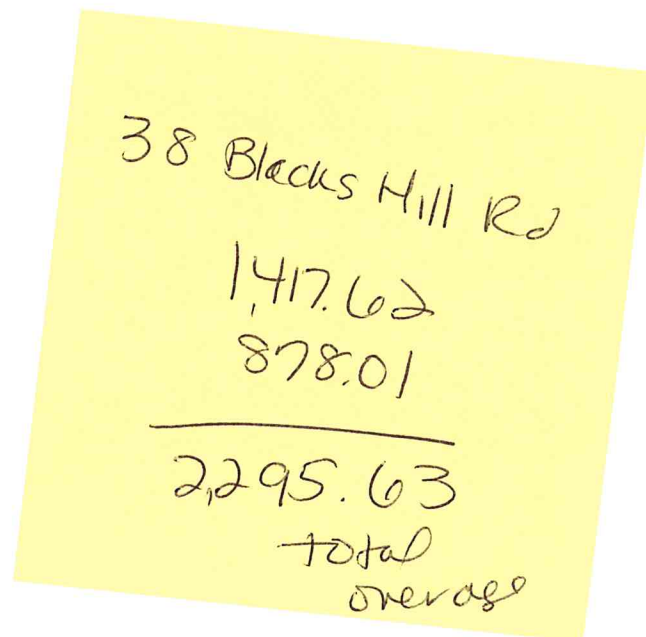 38 Blacks Hill Rd
1,417.62
878.01
2,295.63
total
overage